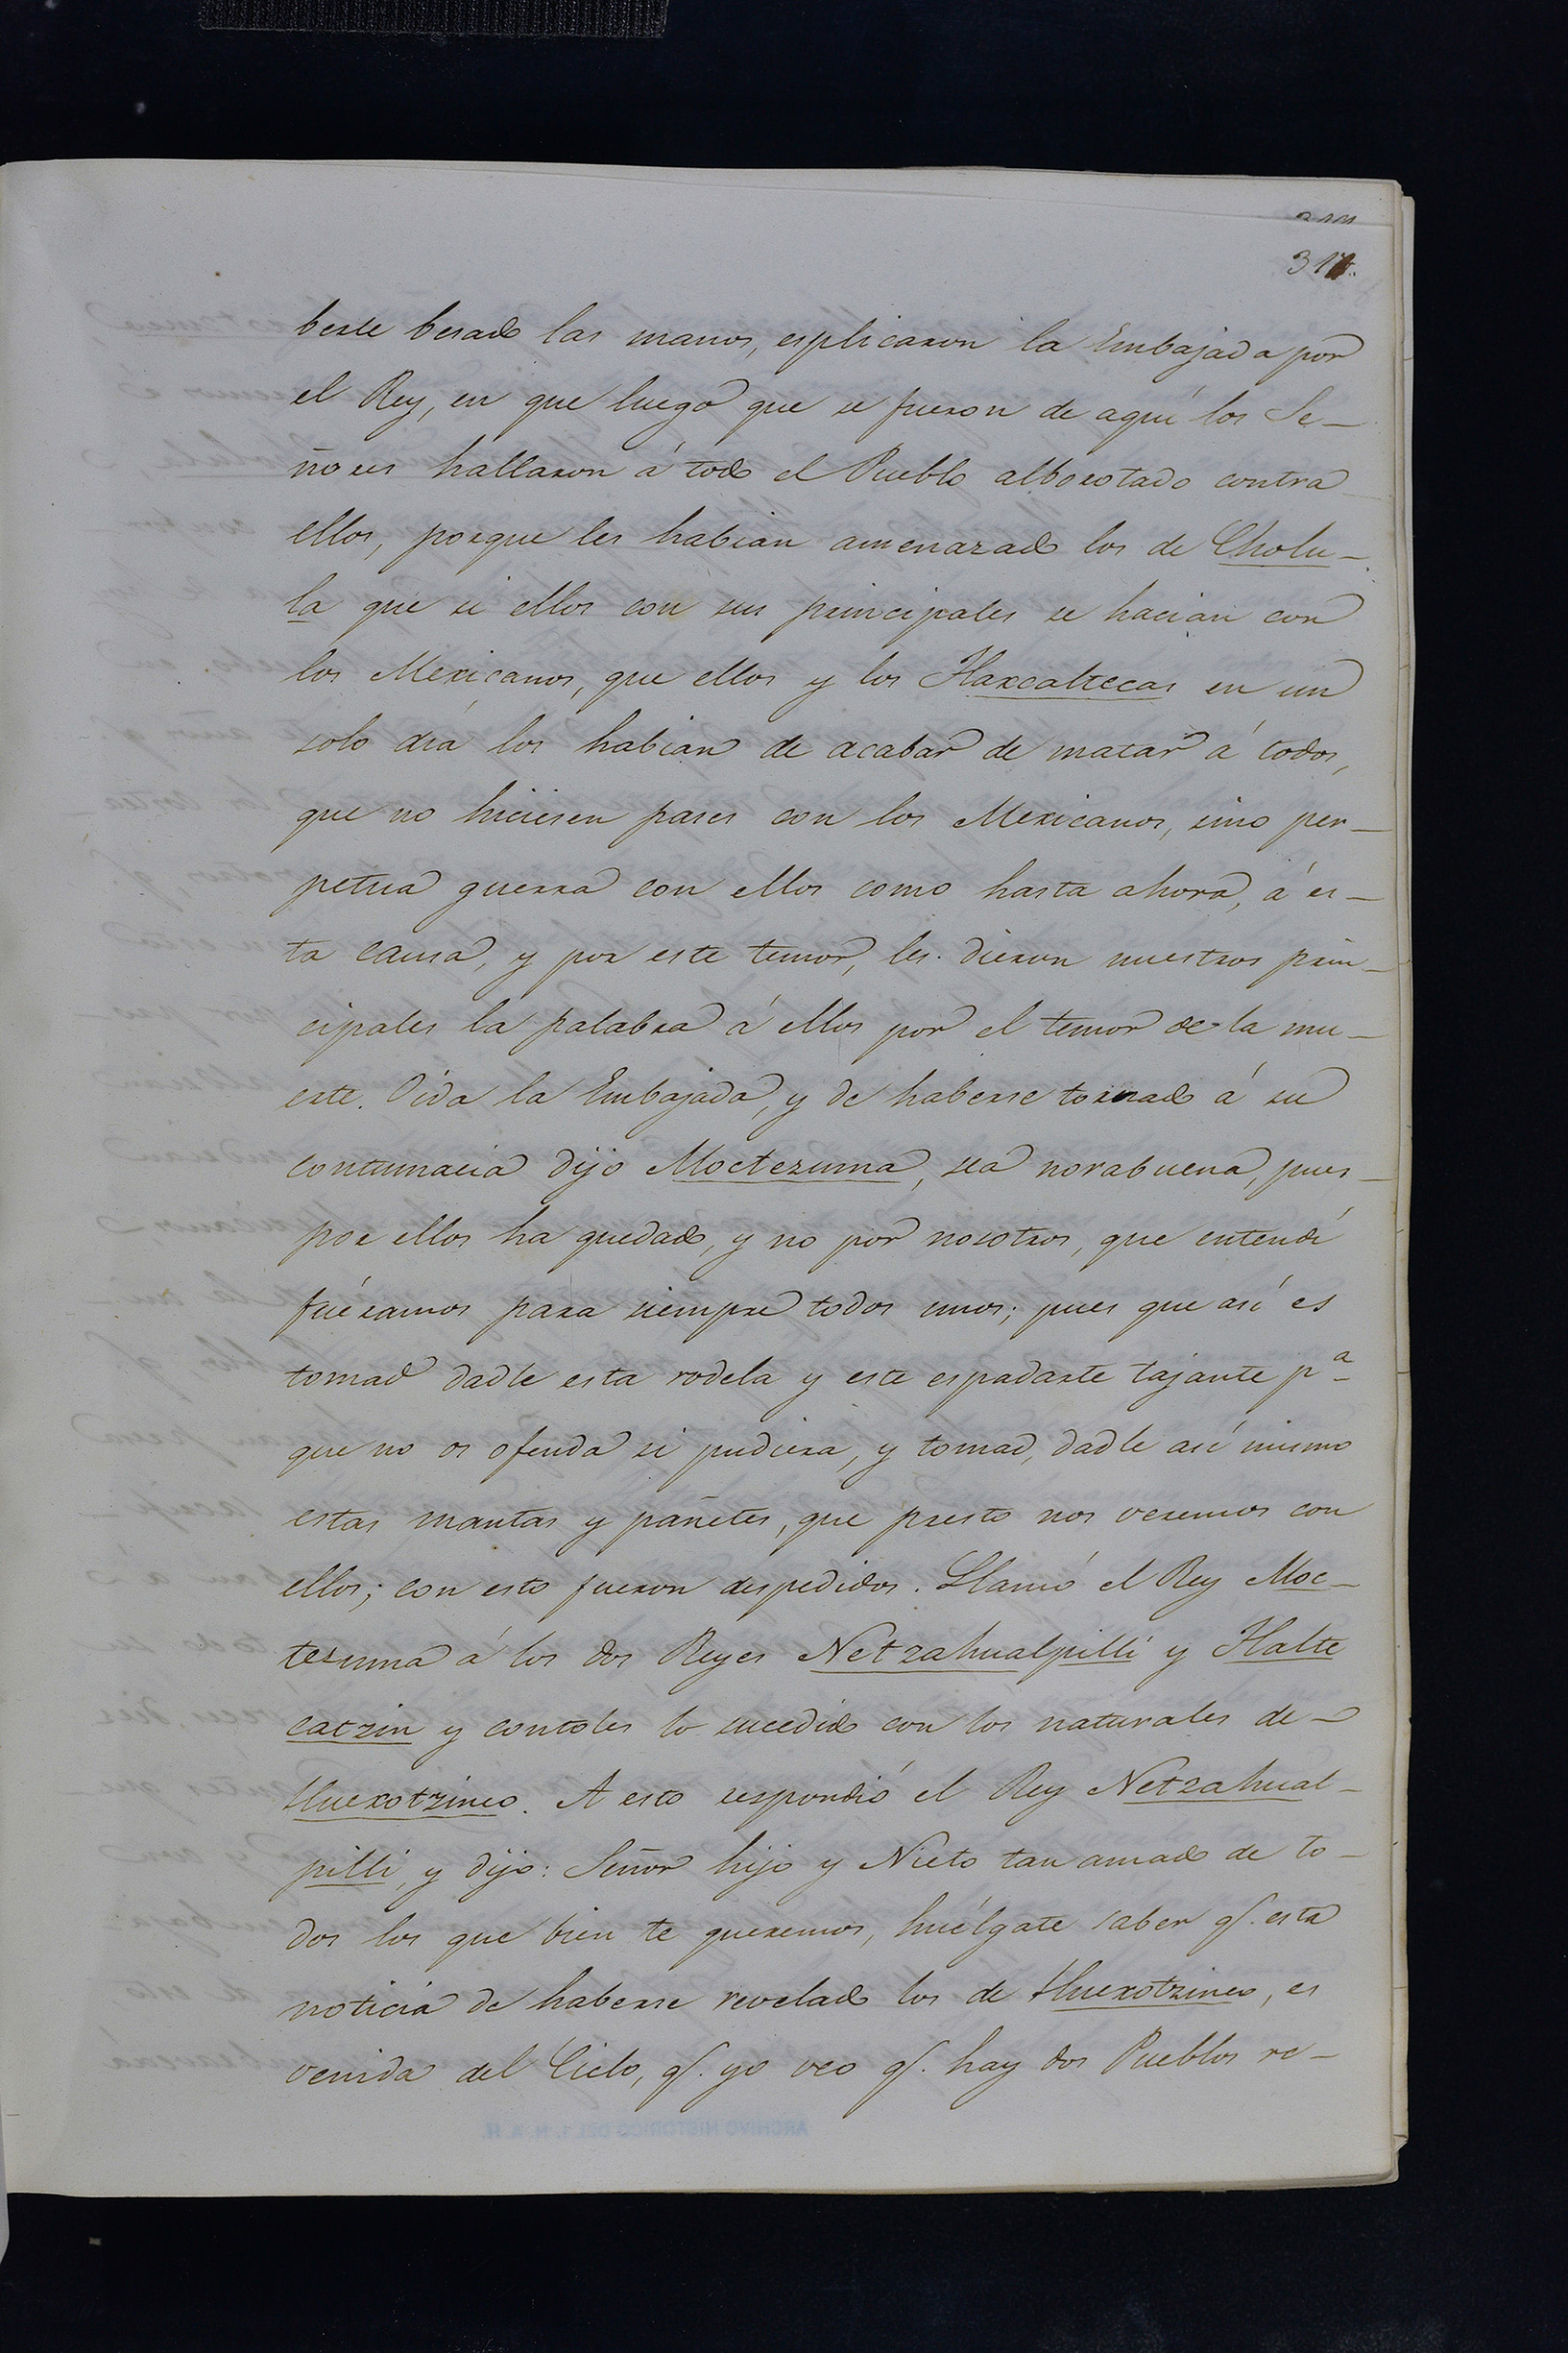 317.
berle besado las manos, esplicaron la Embajada por
el Rey, en que luego que se fueron de aquí los Se-
ñores hallaron á todo el Pueblo alborotado contra
ellos, porque les habian amenazado los de Cholu-
la que si ellos con sus principales se hacian con
los Mexicanos, que ellos y los Tlaxcaltecas en un
solo dia los habian de acabar de matar á todos,
que no hiciesen pases con los Mexicanos, sino per-
petua guerra con ellos como hasta ahora, á es-
ta causa, y por este temor, les dieron nuestros prin-
cipales la palabra á ellos por el temor de la mu-
erte. Oida la Embajada, y de haberse tornado á su
contumacia dijo Moctezuma, sea norabuena, pues
por ellos ha quedado, y no por nosotros, que entendí
fuéramos para siempre todos unos; pues que así es
tomad dadle esta rodela y este espadarte tajante pª
que no os ofenda si pudiera, y tomad, dadle así mismo
estas mantas y pañetes, que presto nos veremos con
ellos; con esto fueron despedidos. Llamó el Rey Moc-
tezuma á los dos Reyes Netzahualpilli y Tlalte
catzin y contoles lo sucedido con los naturales de
Huexotzinco. A esto respondió el Rey Netzahual-
pilli, y dijo: Señor hijo y Nieto tan amado de to-
dos los que bien te queremos, huélgate saber q. esta
noticia de haberse revelado los de Huexotzinco, es
venida del Cielo, q. yo veo q. hay dos Pueblos re-